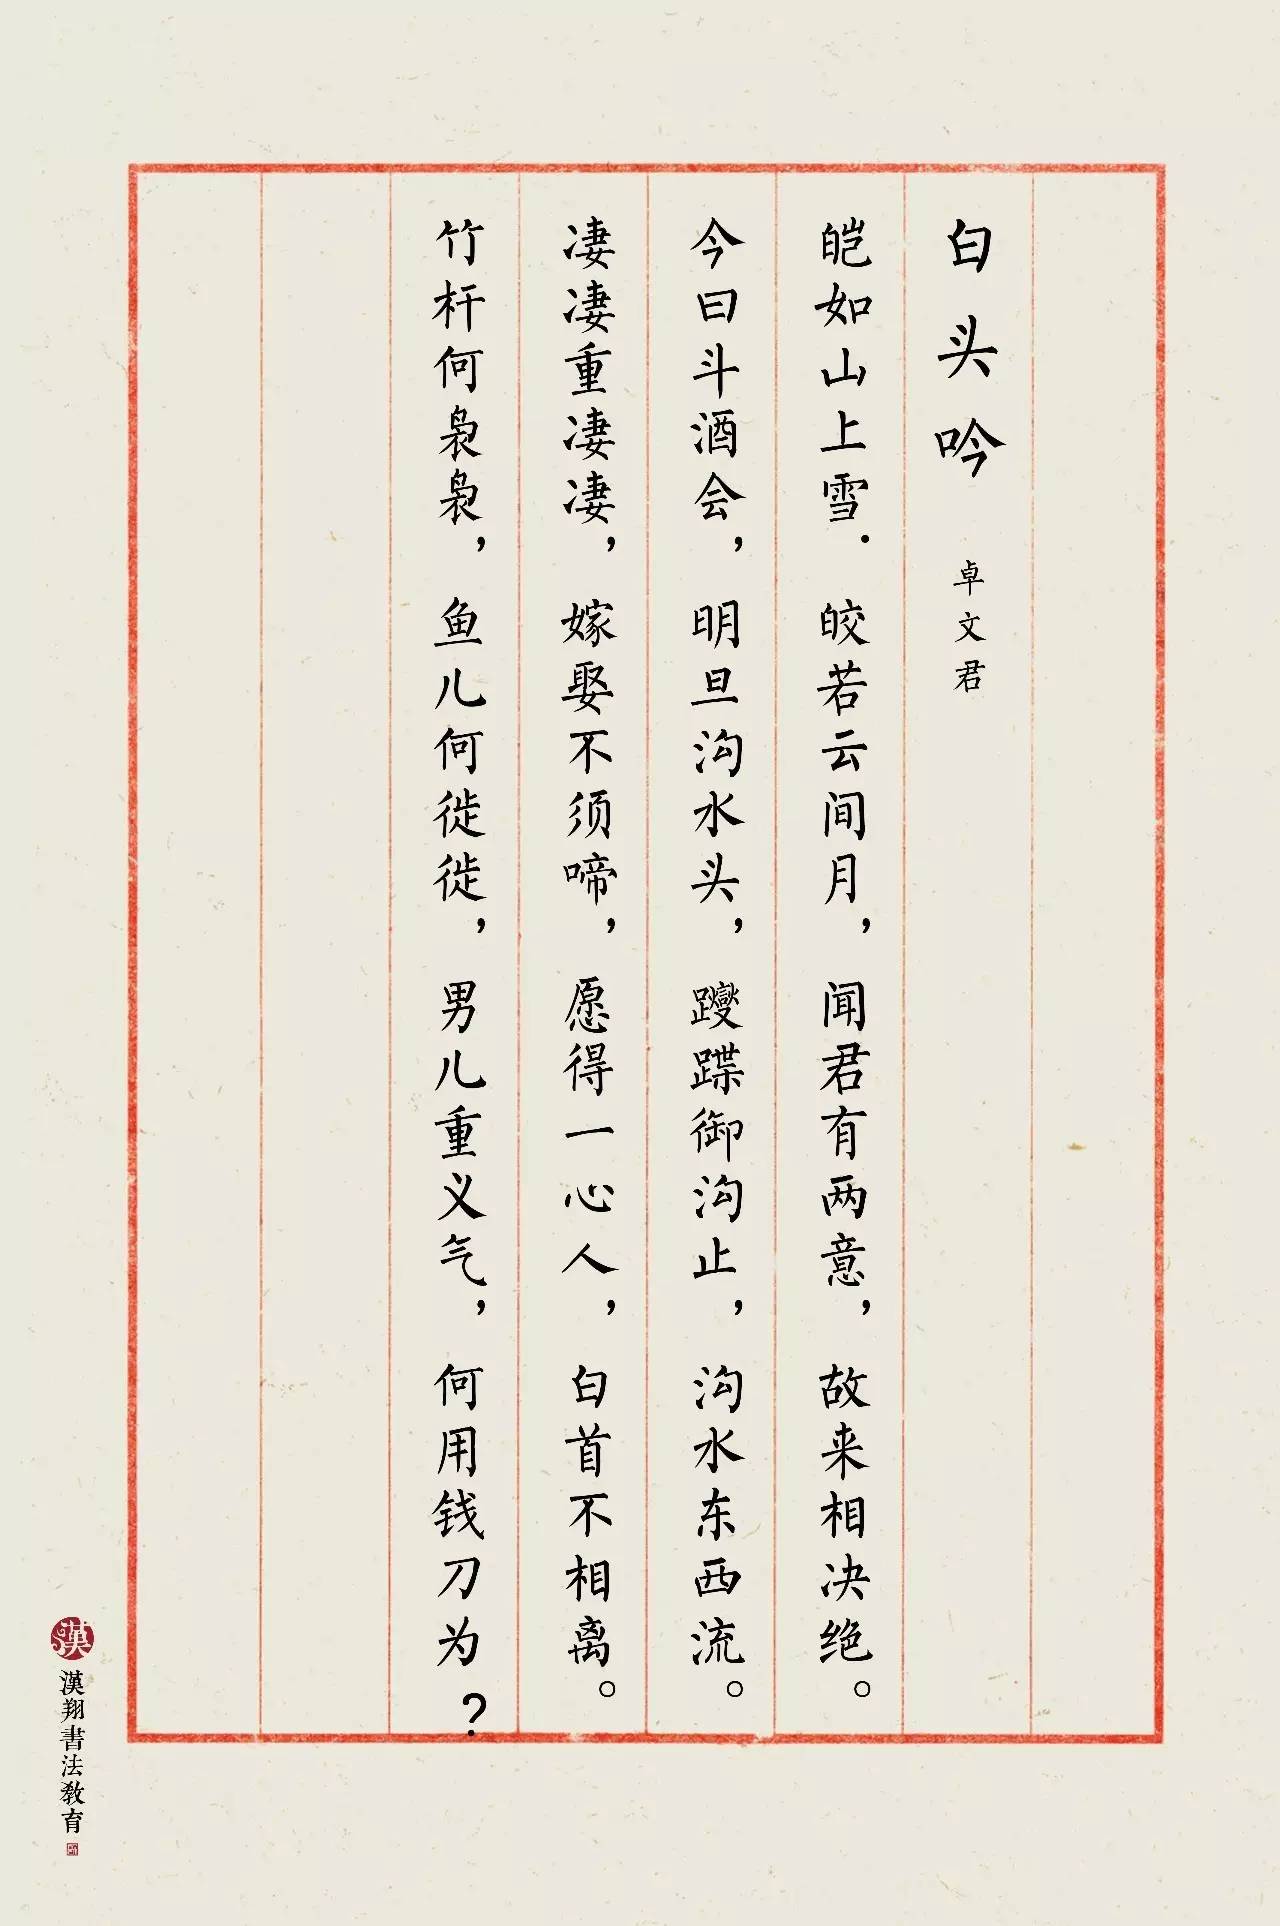 白头吟 卓文君
皑如山上雪. 皎若云间月，闻君有两意，故来相决绝。
今日斗酒会，明旦沟水头，躞蹀御沟止，沟水东西流。
凄凄重凄凄，嫁娶不须啼，愿得一心人，白首不相离。
竹杆何袅袅，鱼儿何徙徙，男儿重义气，何用钱刀为？
漢
漢翔書法教育